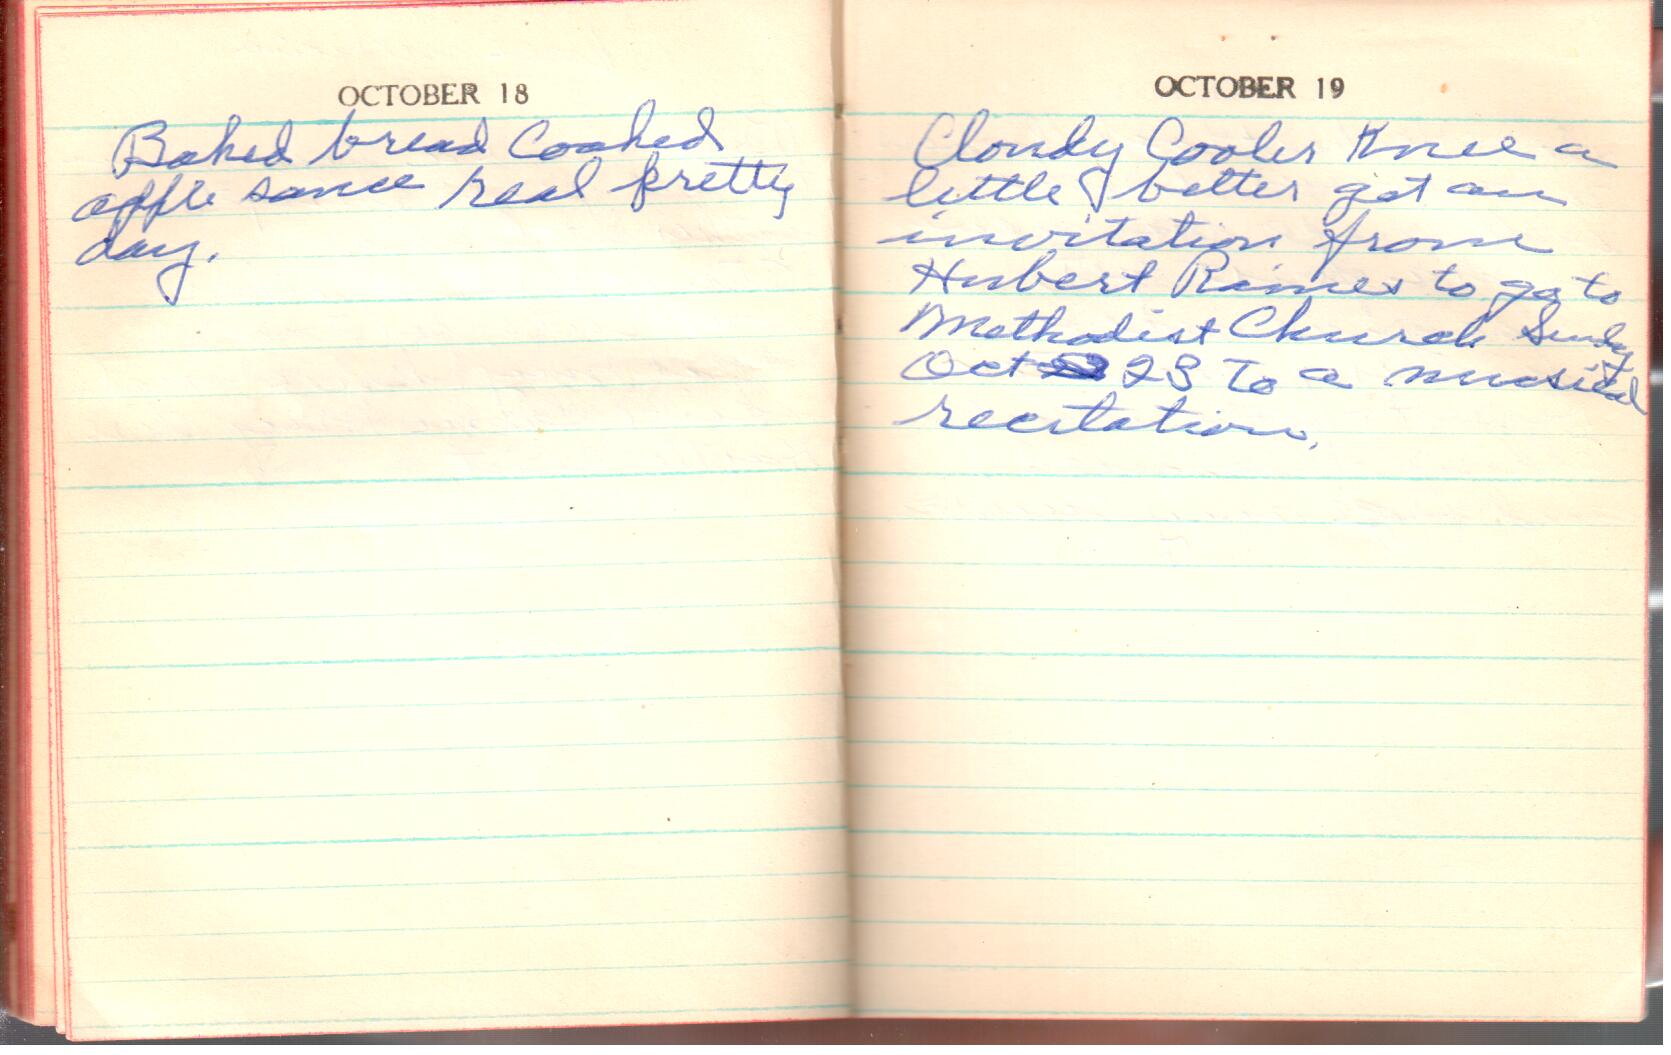 OCTOBER 18
Baked bread Cooked
apple sauce real pretty
day.
OCTOBER 19
Cloudy Cooler Knee a
little better got an
invitation from
Hubert Raines to go to
Methodist Church Sunday
Oct 23 To a musical
recitation.